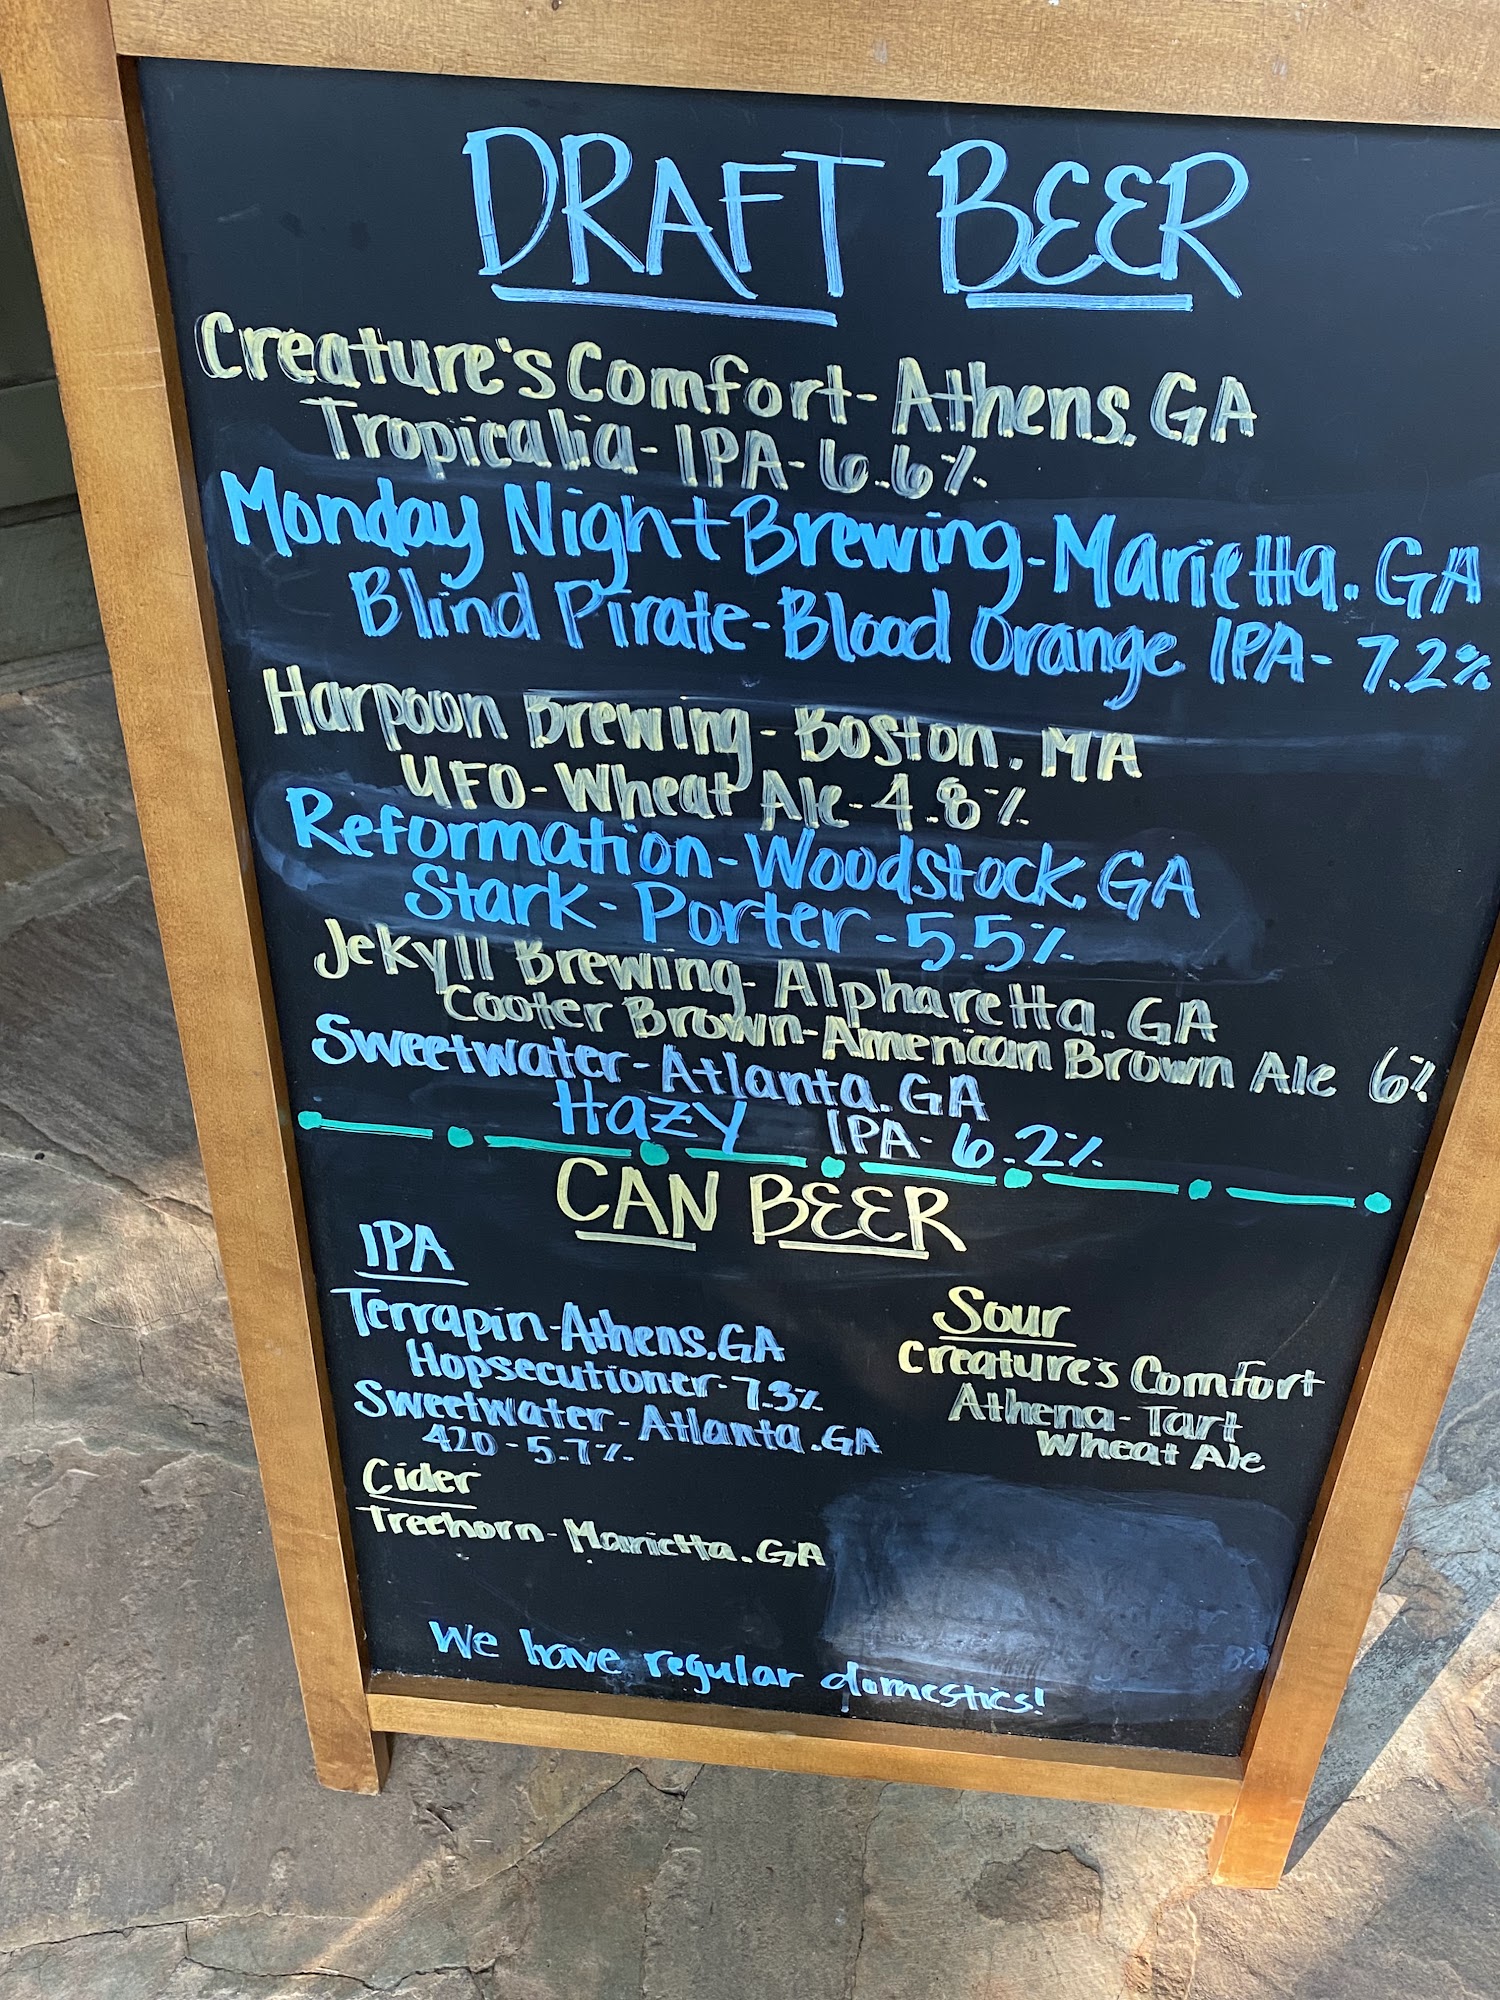 DRAFT BEER
Creature's Comfort- Athens, GA
Tropicalia- IPA- 6.6%
Monday Night Brewing- Marietta, GA
Blind Pirate- Blood Orange IPA- 7.2%
Harpoon Brewing- Boston, MA
UFO- Wheat Ale- 4.8%
Reformation- Woodstock, GA
Stark- Porter- 5.5%
Jekyll Brewing- Alpharetta, GA
Cooter Brown- American Brown Ale 6%
Sweetwater- Atlanta, GA
Hazy IPA- 6.2%
CAN BEER
IPA
Terrapin- Athens, GA
Hopsecutioner- 7.3%
Sweetwater- Atlanta, GA
420 - 5.7%
Cider
Treehorn- Marietta, GA
Sour
Creature's Comfort
Athena- Tart
Wheat Ale
We have regular domestics!